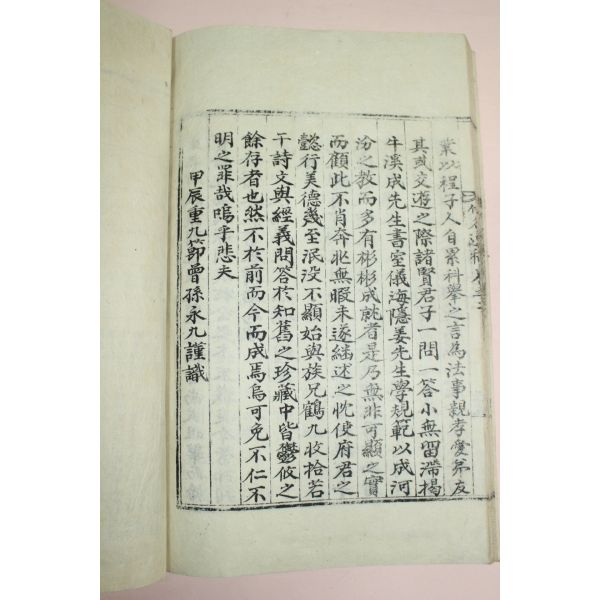 業以程子人自累科舉之言為法事親孝愛弟友
其或交遊之際諸賢君子一問一答小無留滯揭
牛溪成先生書室儀海隱姜先生學規範以成河
汾之教而多有彬彬成就者是乃無非可顯之實
而顧此不肖奔北無暇未遂繼述之忱使府君之
懿行美德幾至泯沒不顯始與族兄鶴九收拾若
干詩文與經義問答於知舊之珍藏中皆鬱攸之
餘存者也然不於前而今而成焉烏可免不仁不
明之罪哉嗚乎悲夫
甲辰重九節曾孫永九謹識